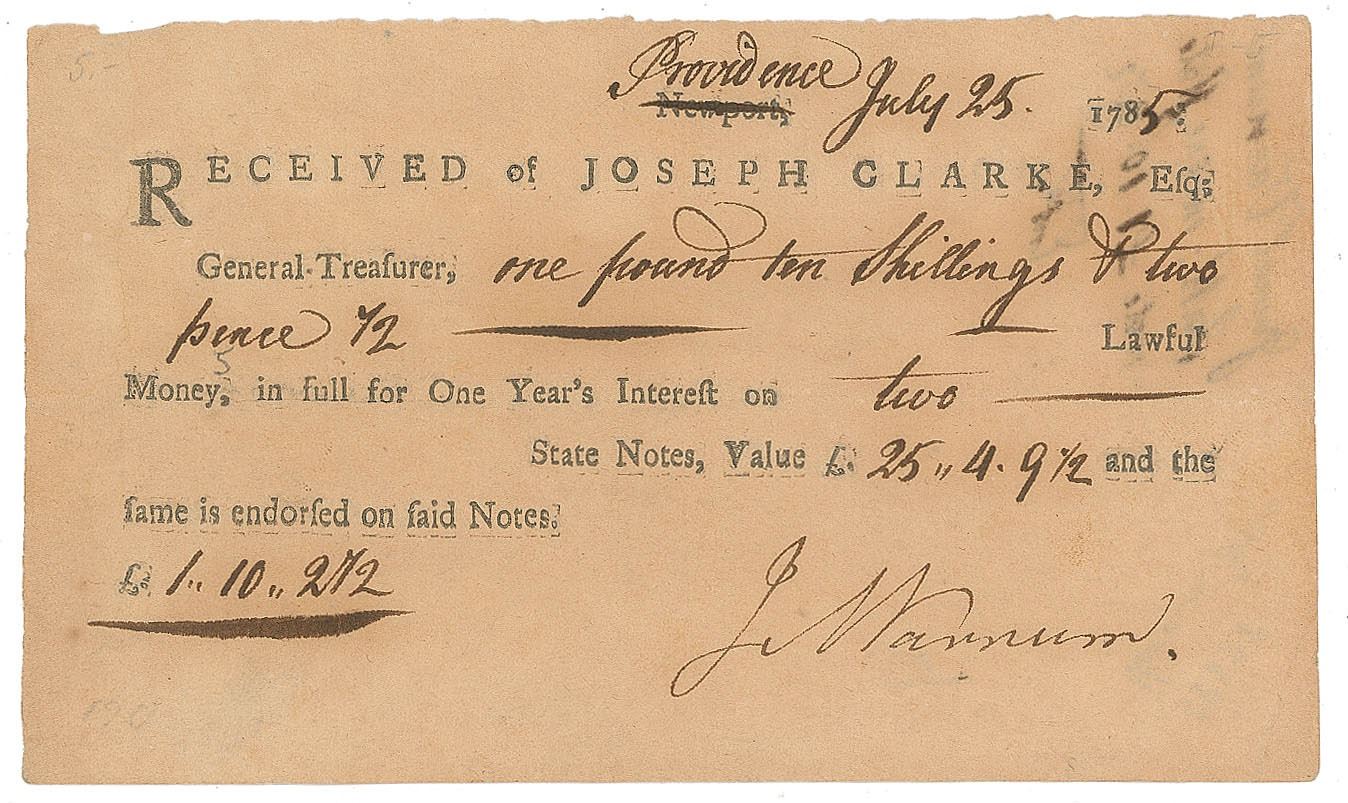 Providence July 25. 1785.
Newport,
RECEIVED of JOSEPH CLARKE, Eſq;
General-Treaſurer, one pound ten Shillings & two
pence 1/2 Lawful
Money, in full for One Year's Intereſt on two
State Notes, Value £. 25,, 4. 9 1/2 and the
ſame is endorſed on ſaid Notes.
£. 1,, 10,, 2 1/2
J M Varnum.